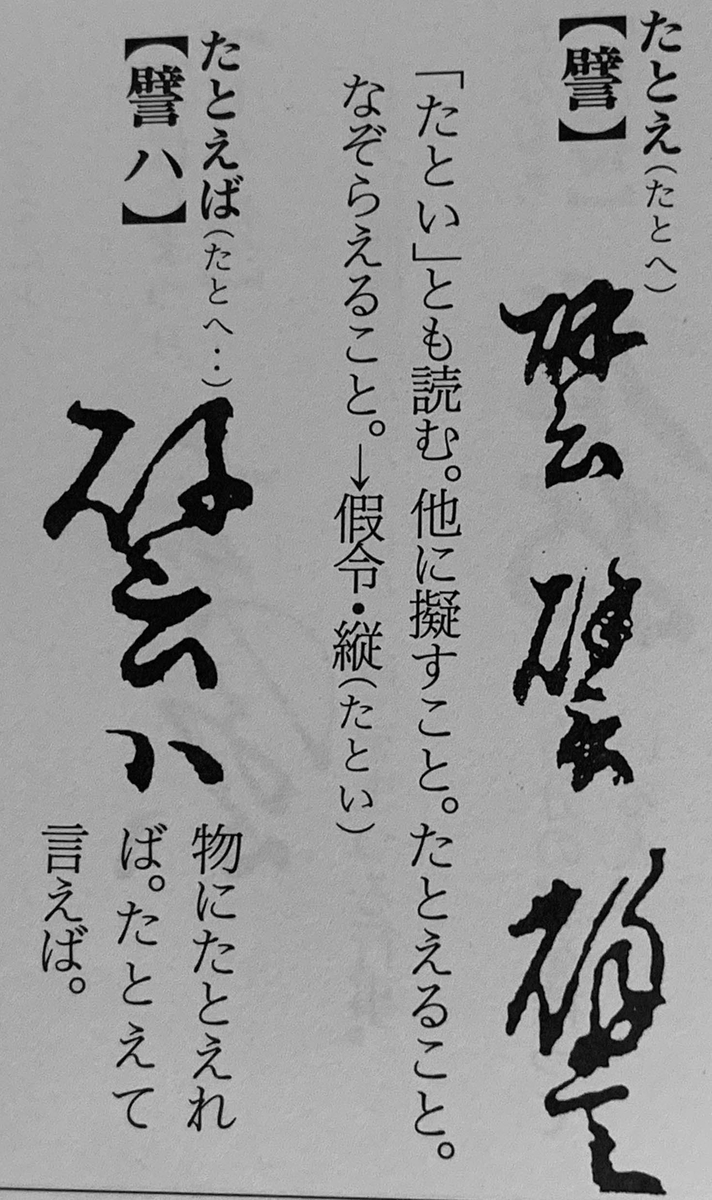 たとえ(たとへ)
【譬】
譬 譬 譬
「たとい」とも読む。他に擬すこと。たとえること。
なぞらえること。→假令・縦(たとい)
たとえば(たとへ‥)
【譬ハ】
譬ハ
物にたとえれ
ば。たとえて
言えば。